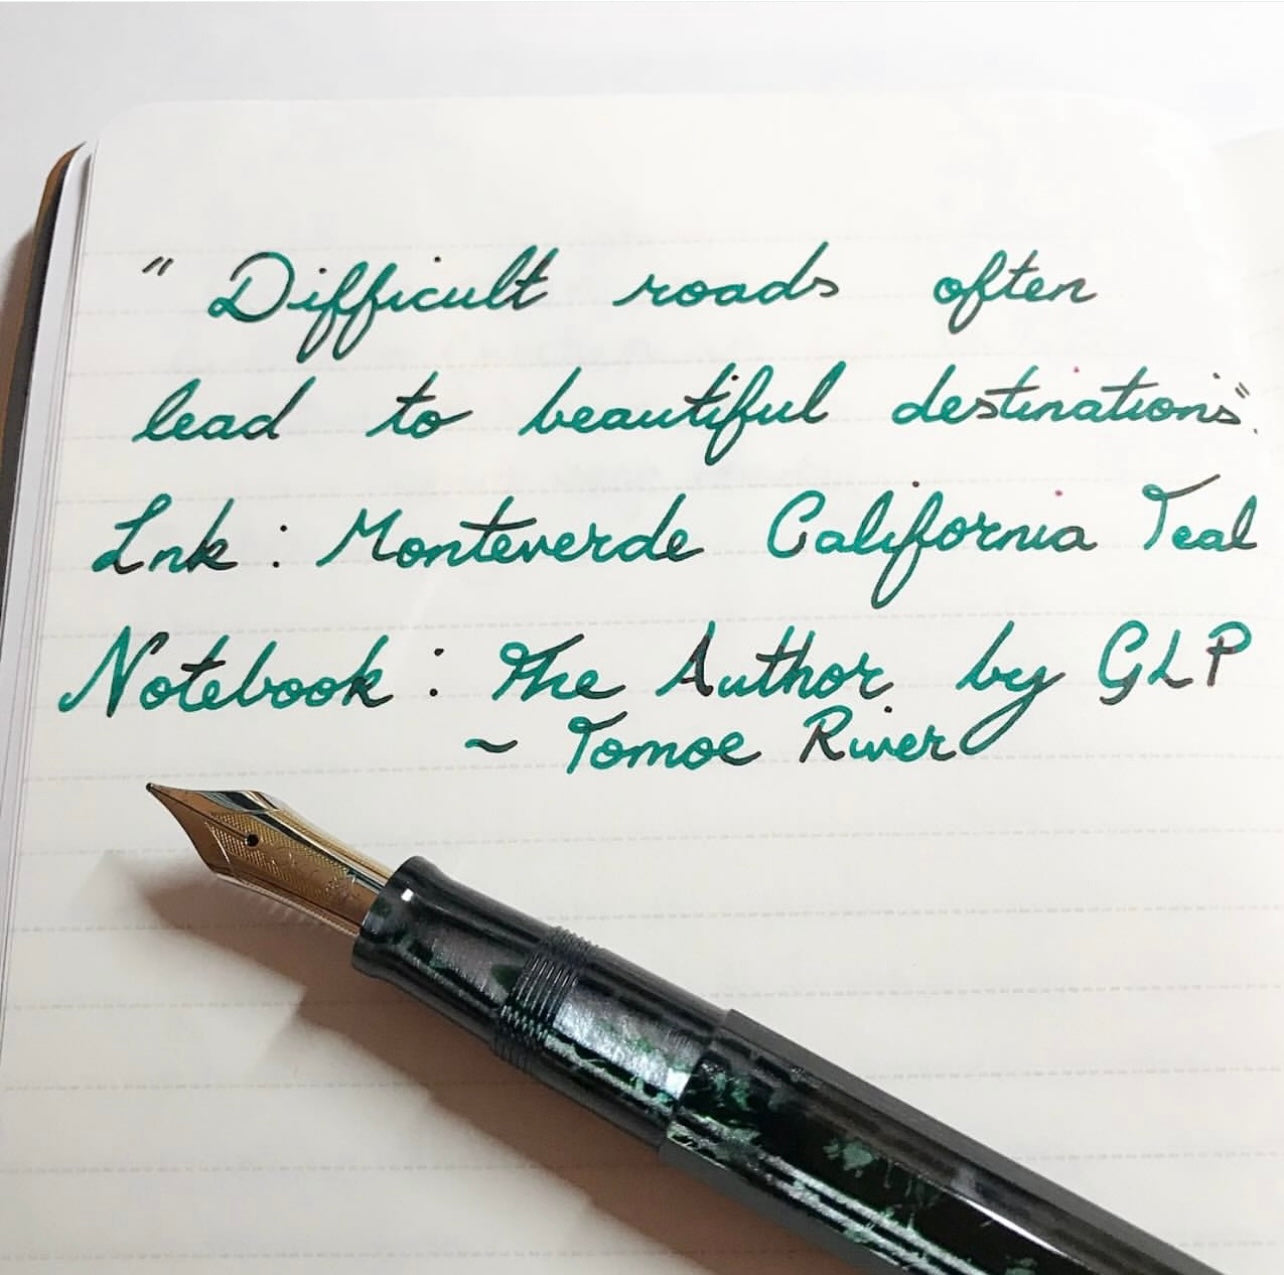 " Difficult roads often
lead to beautiful destinations".
Ink : Monteverde California Teal
Notebook : The Author by GLP
~ Tomoe River